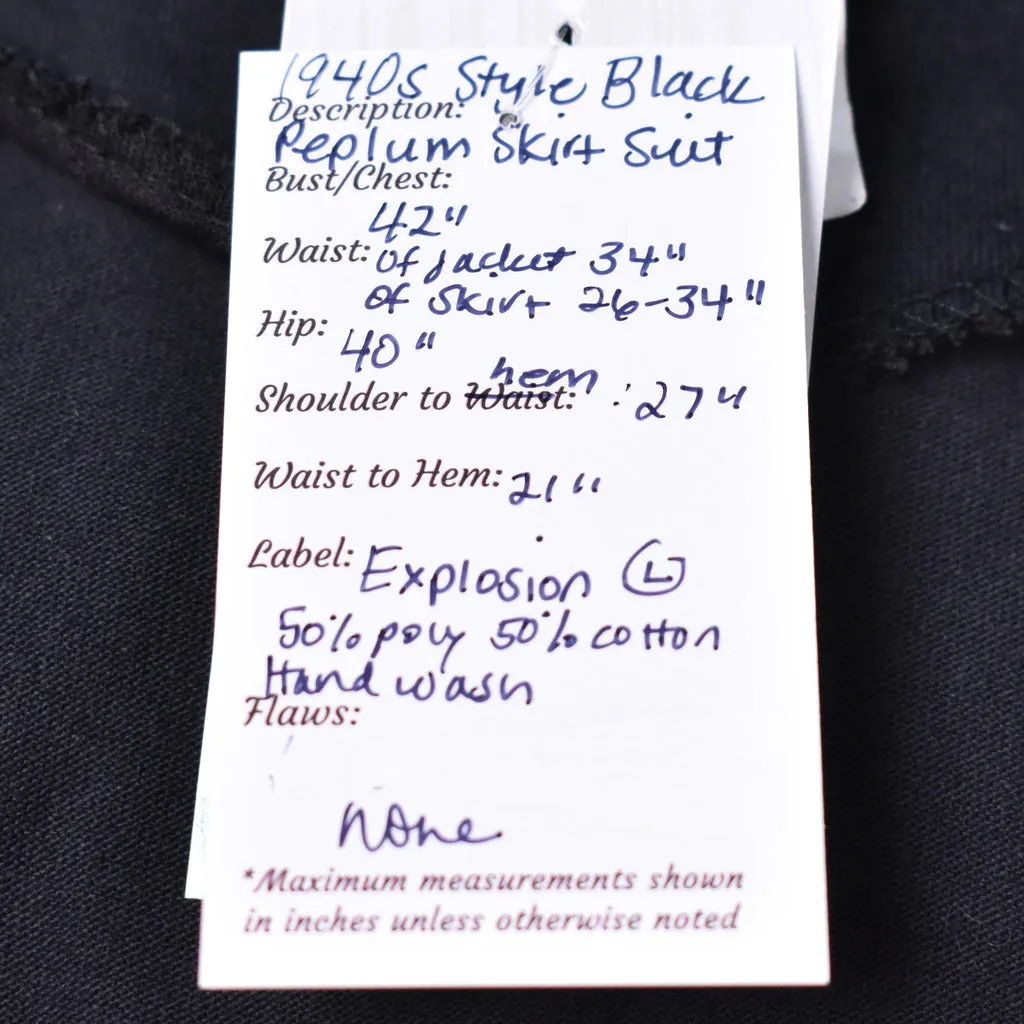 1940s Style Black
Description:
Peplum Skirt Suit
Bust/Chest:
42"
Waist: of jacket 34"
of skirt 26-34"
Hip:
40"
hem
Shoulder to Waist: : 27"
Waist to Hem: 21"
Label: Explosion L
50% poly 50% cotton
Hand wash
Flaws:
None
*Maximum measurements shown
in inches unless otherwise noted